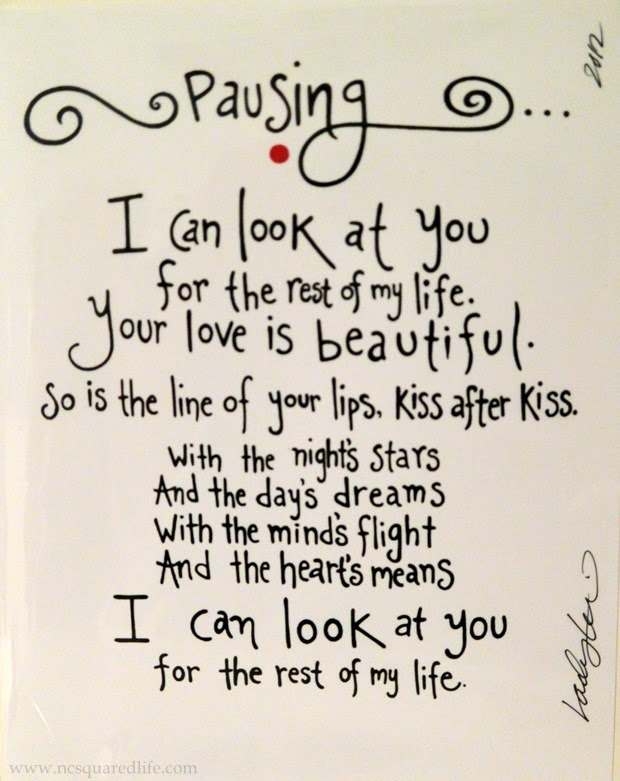 2012
Pausing...
I can look at you
for the rest of my life.
Your love is beautiful.
So is the line of your lips, kiss after kiss.
With the night's stars
And the day's dreams
With the mind's flight
And the heart's means
I can look at you
for the rest of my life.
www.ncsquaredlife.com